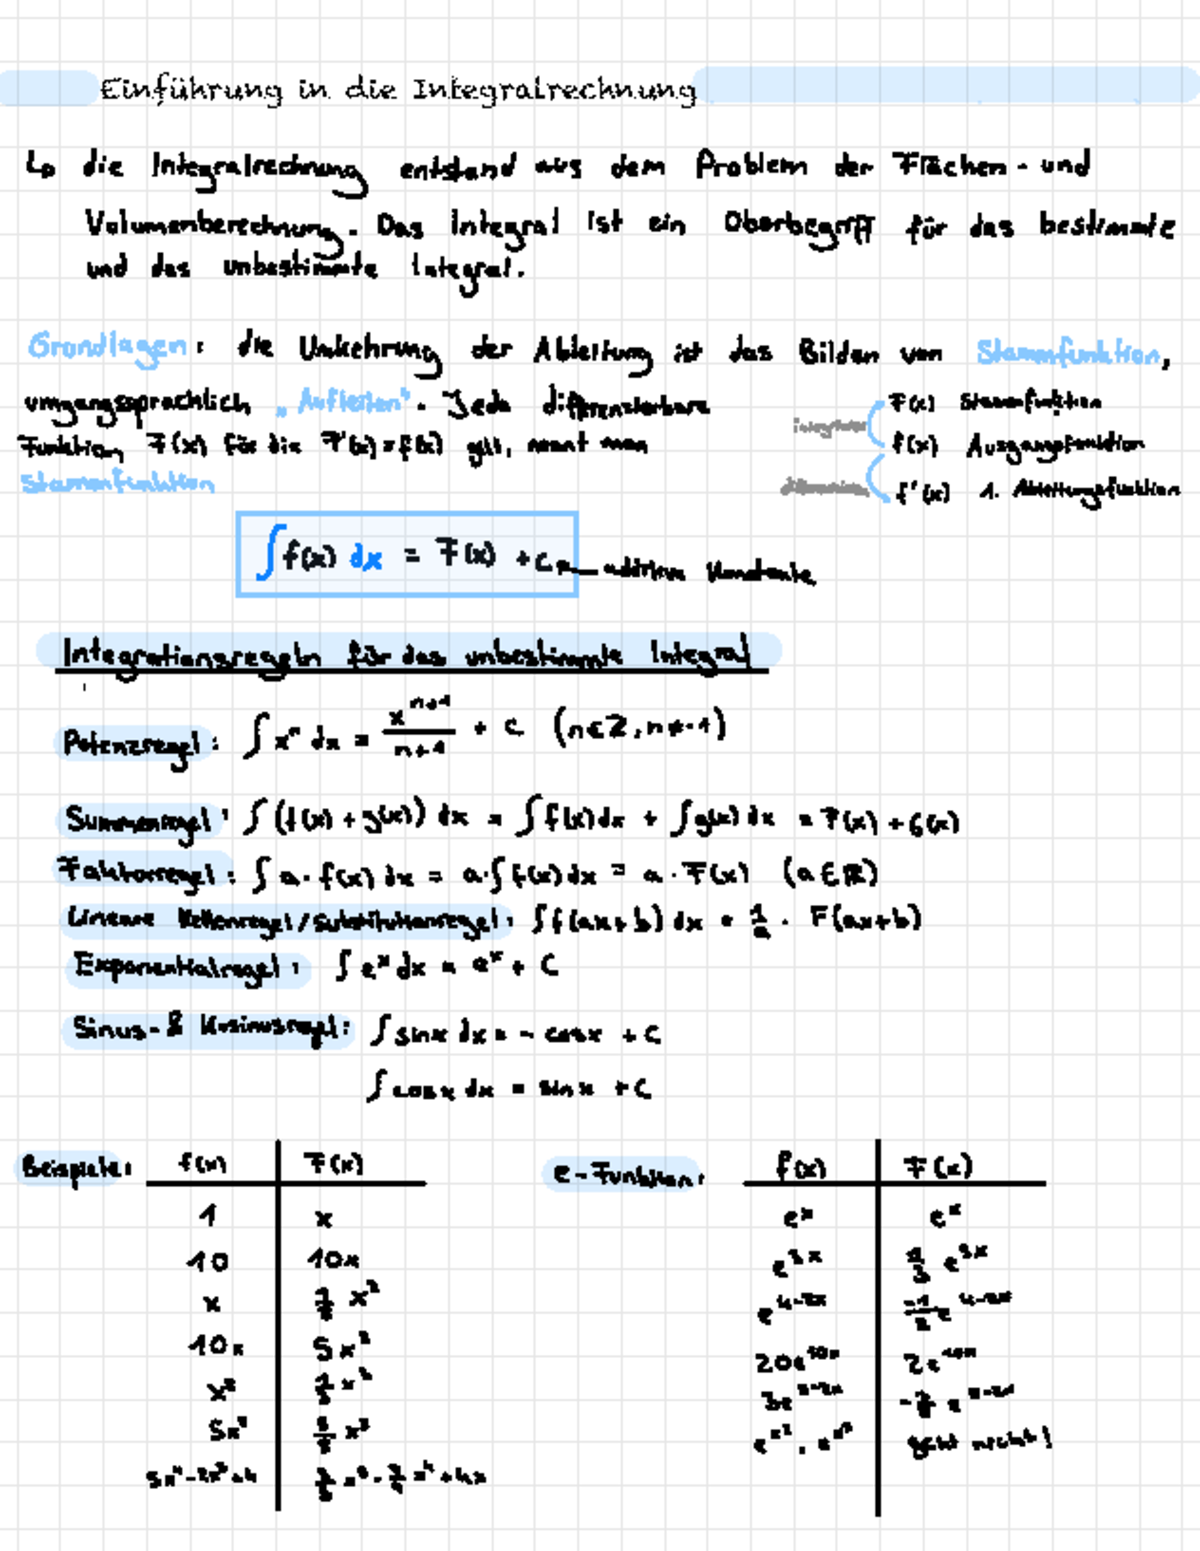 Einführung in die Integralrechnung
↳ die Integralrechnung entstand aus dem Problem der Flächen- und
Volumenberechnung. Das Integral ist ein Oberbegriff für das bestimmte
und das unbestimmte Integral.
Grundlagen: die Umkehrung der Ableitung ist das Bilden von Stammfunktion,
umgangssprachlich „Aufleiten". Jede differenzierbare
Funktion F(x) für die F'(x) = f(x) gilt, nennt man
Stammfunktion
F(x) Stammfunktion
f(x) Ausgangsfunktion
f'(x) 1. Ableitungsfunktion
∫ f(x) dx = F(x) + C additive Konstante
Integrationsregeln für das unbestimmte Integral
Potenzregel: ∫ xⁿ dx = x^(n+1)/(n+1) + C (n∈Z, n≠-1)
Summenregel: ∫ (f(x) + g(x)) dx = ∫ f(x) dx + ∫ g(x) dx = F(x) + G(x)
Faktorregel: ∫ a · f(x) dx = a · ∫ f(x) dx = a · F(x) (a ∈ ℝ)
Lineare Kettenregel/Substitutionsregel: ∫ f(ax+b) dx = 1/a · F(ax+b)
Exponentialregel: ∫ eˣ dx = eˣ + C
Sinus- & Kosinusregel: ∫ sinx dx = - cosx + C
∫ cosx dx = sinx + C
Beispiele: f(x) F(x)
1 x
10 10x
x 1/2 x²
10x 5x²
x² 1/3 x³
e-Funktion: f(x) F(x)
eˣ eˣ
e^(3x) 1/3 e^(3x)
e^(4-2x)
20e^(10x) 2e^(10x)
geht nicht!